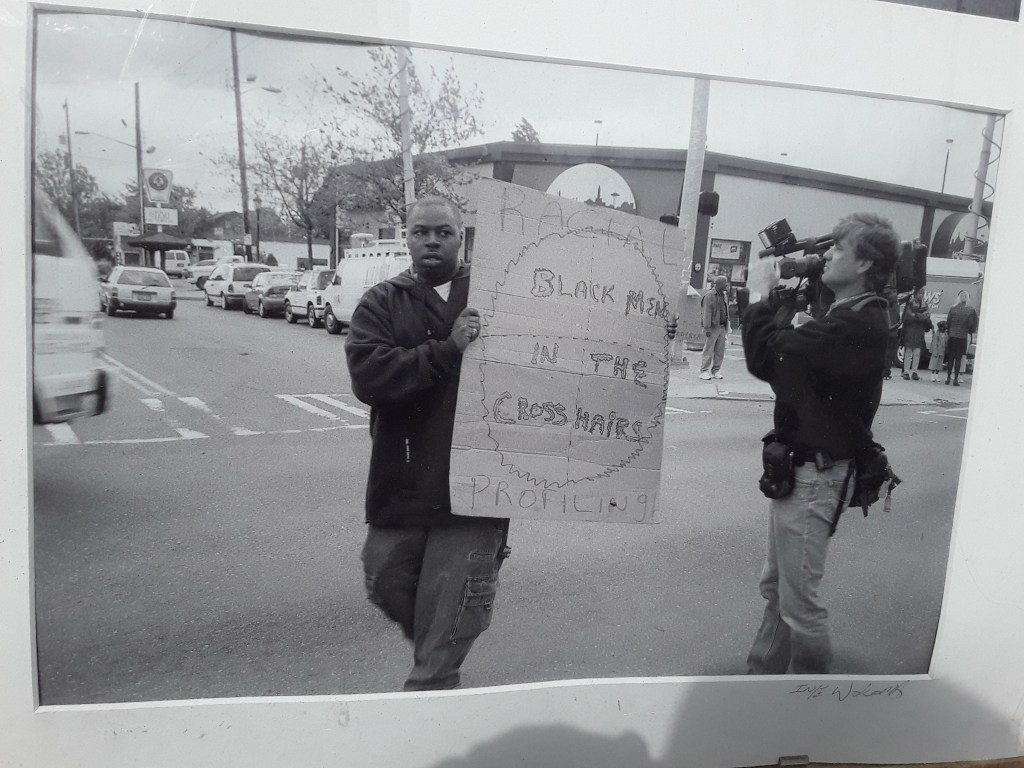 RACIAL
BLACK MEN
IN THE
CROSS HAIRS
PROFILING!
WS